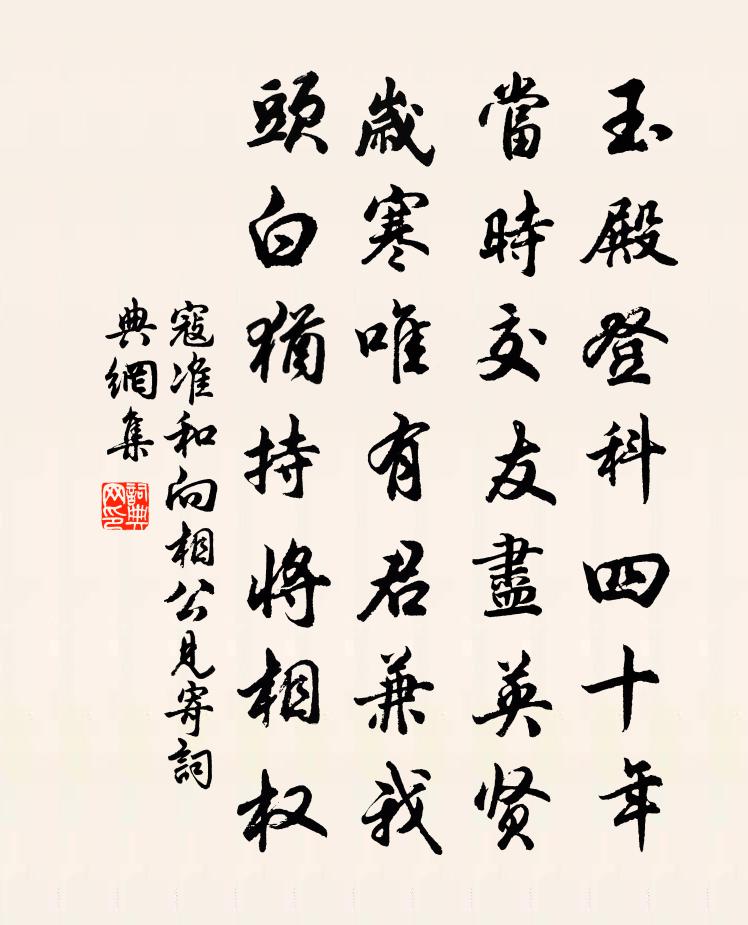 玉殿登科四十年
當時交友盡英賢
歲寒唯有君兼我
頭白猶持將相权
寇准和向相公見寄詞
典網集
詞典網印